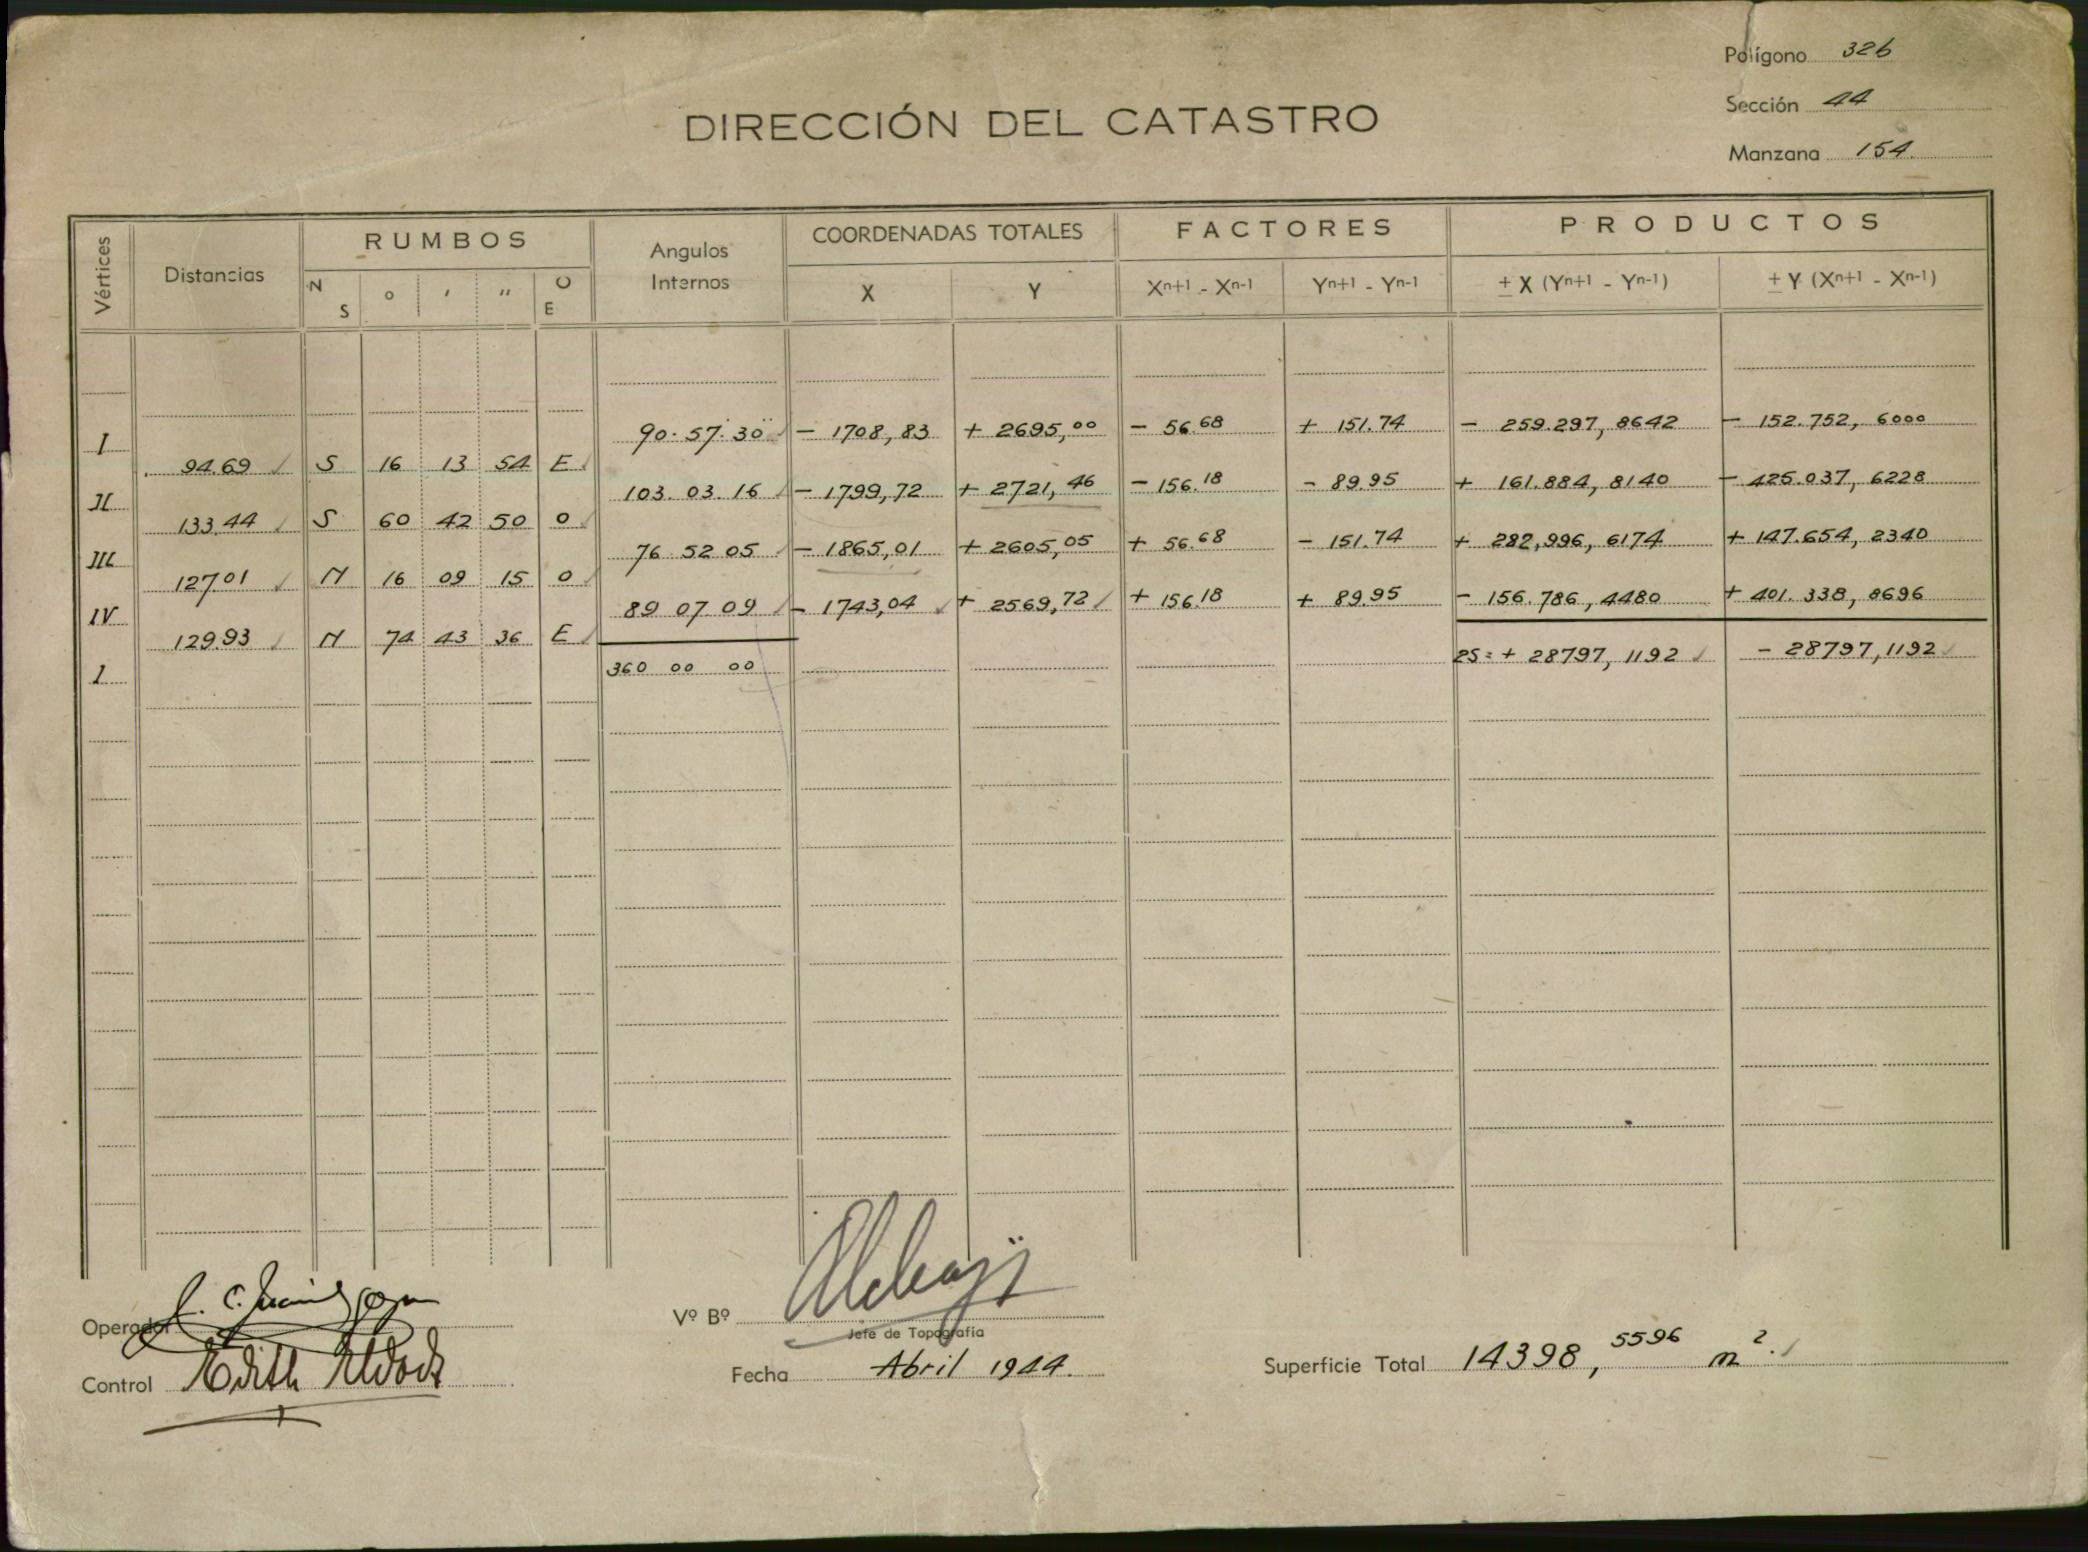 Polígono 326
Sección 44
Manzana 154.
DIRECCIÓN DEL CATASTRO
Vértices Distancias RUMBOS Angulos Internos COORDENADAS TOTALES FACTORES PRODUCTOS
N S ° ' " O E X Y Xn+1 - Xn-1 Yn+1 - Yn-1 ± X (Yn+1 - Yn-1) ± Y (Xn+1 - Xn-1)
I 90. 57. 30 - 1708,83 + 2695,00 - 56.68 + 151.74 - 259.297,8642 - 152.752,6000
94.69 S 16 13 54 E
II 103. 03. 16 - 1799,72 + 2721,46 - 156.18 - 89.95 + 161.884,8140 - 425.037,6228
133.44 S 60 42 50 O
III 76 52 05 - 1865,01 + 2605,05 + 56.68 - 151.74 + 282,996,6174 + 147.654,2340
127.01 N 16 09 15 O
IV 89 07 09 - 1743,04 + 2569,72 + 156.18 + 89.95 - 156.786,4480 + 401.338,8696
129.93 N 74 43 36 E
I 360 00 00 2S = + 28797,1192 - 28797,1192
Operador
Vº Bº
Jefe de Topografía
Control Edith
Fecha Abril 1944.
Superficie Total 14398,5596 m2.